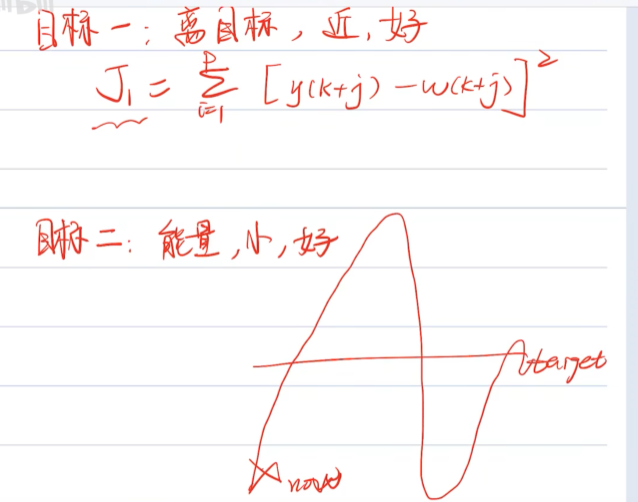 目标一：离目标，近，好
J₁ = Σ_{i=1}^{P} [y(k+j) - w(k+j)]²
目标二：能量，小，好
target
now